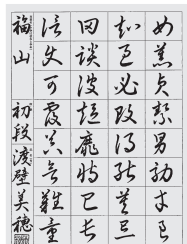 女慕貞絜男效才良
知過必改得能莫忘
罔談彼短靡恃己長
信使可覆器欲難量
福山 初段 渡壁美穂